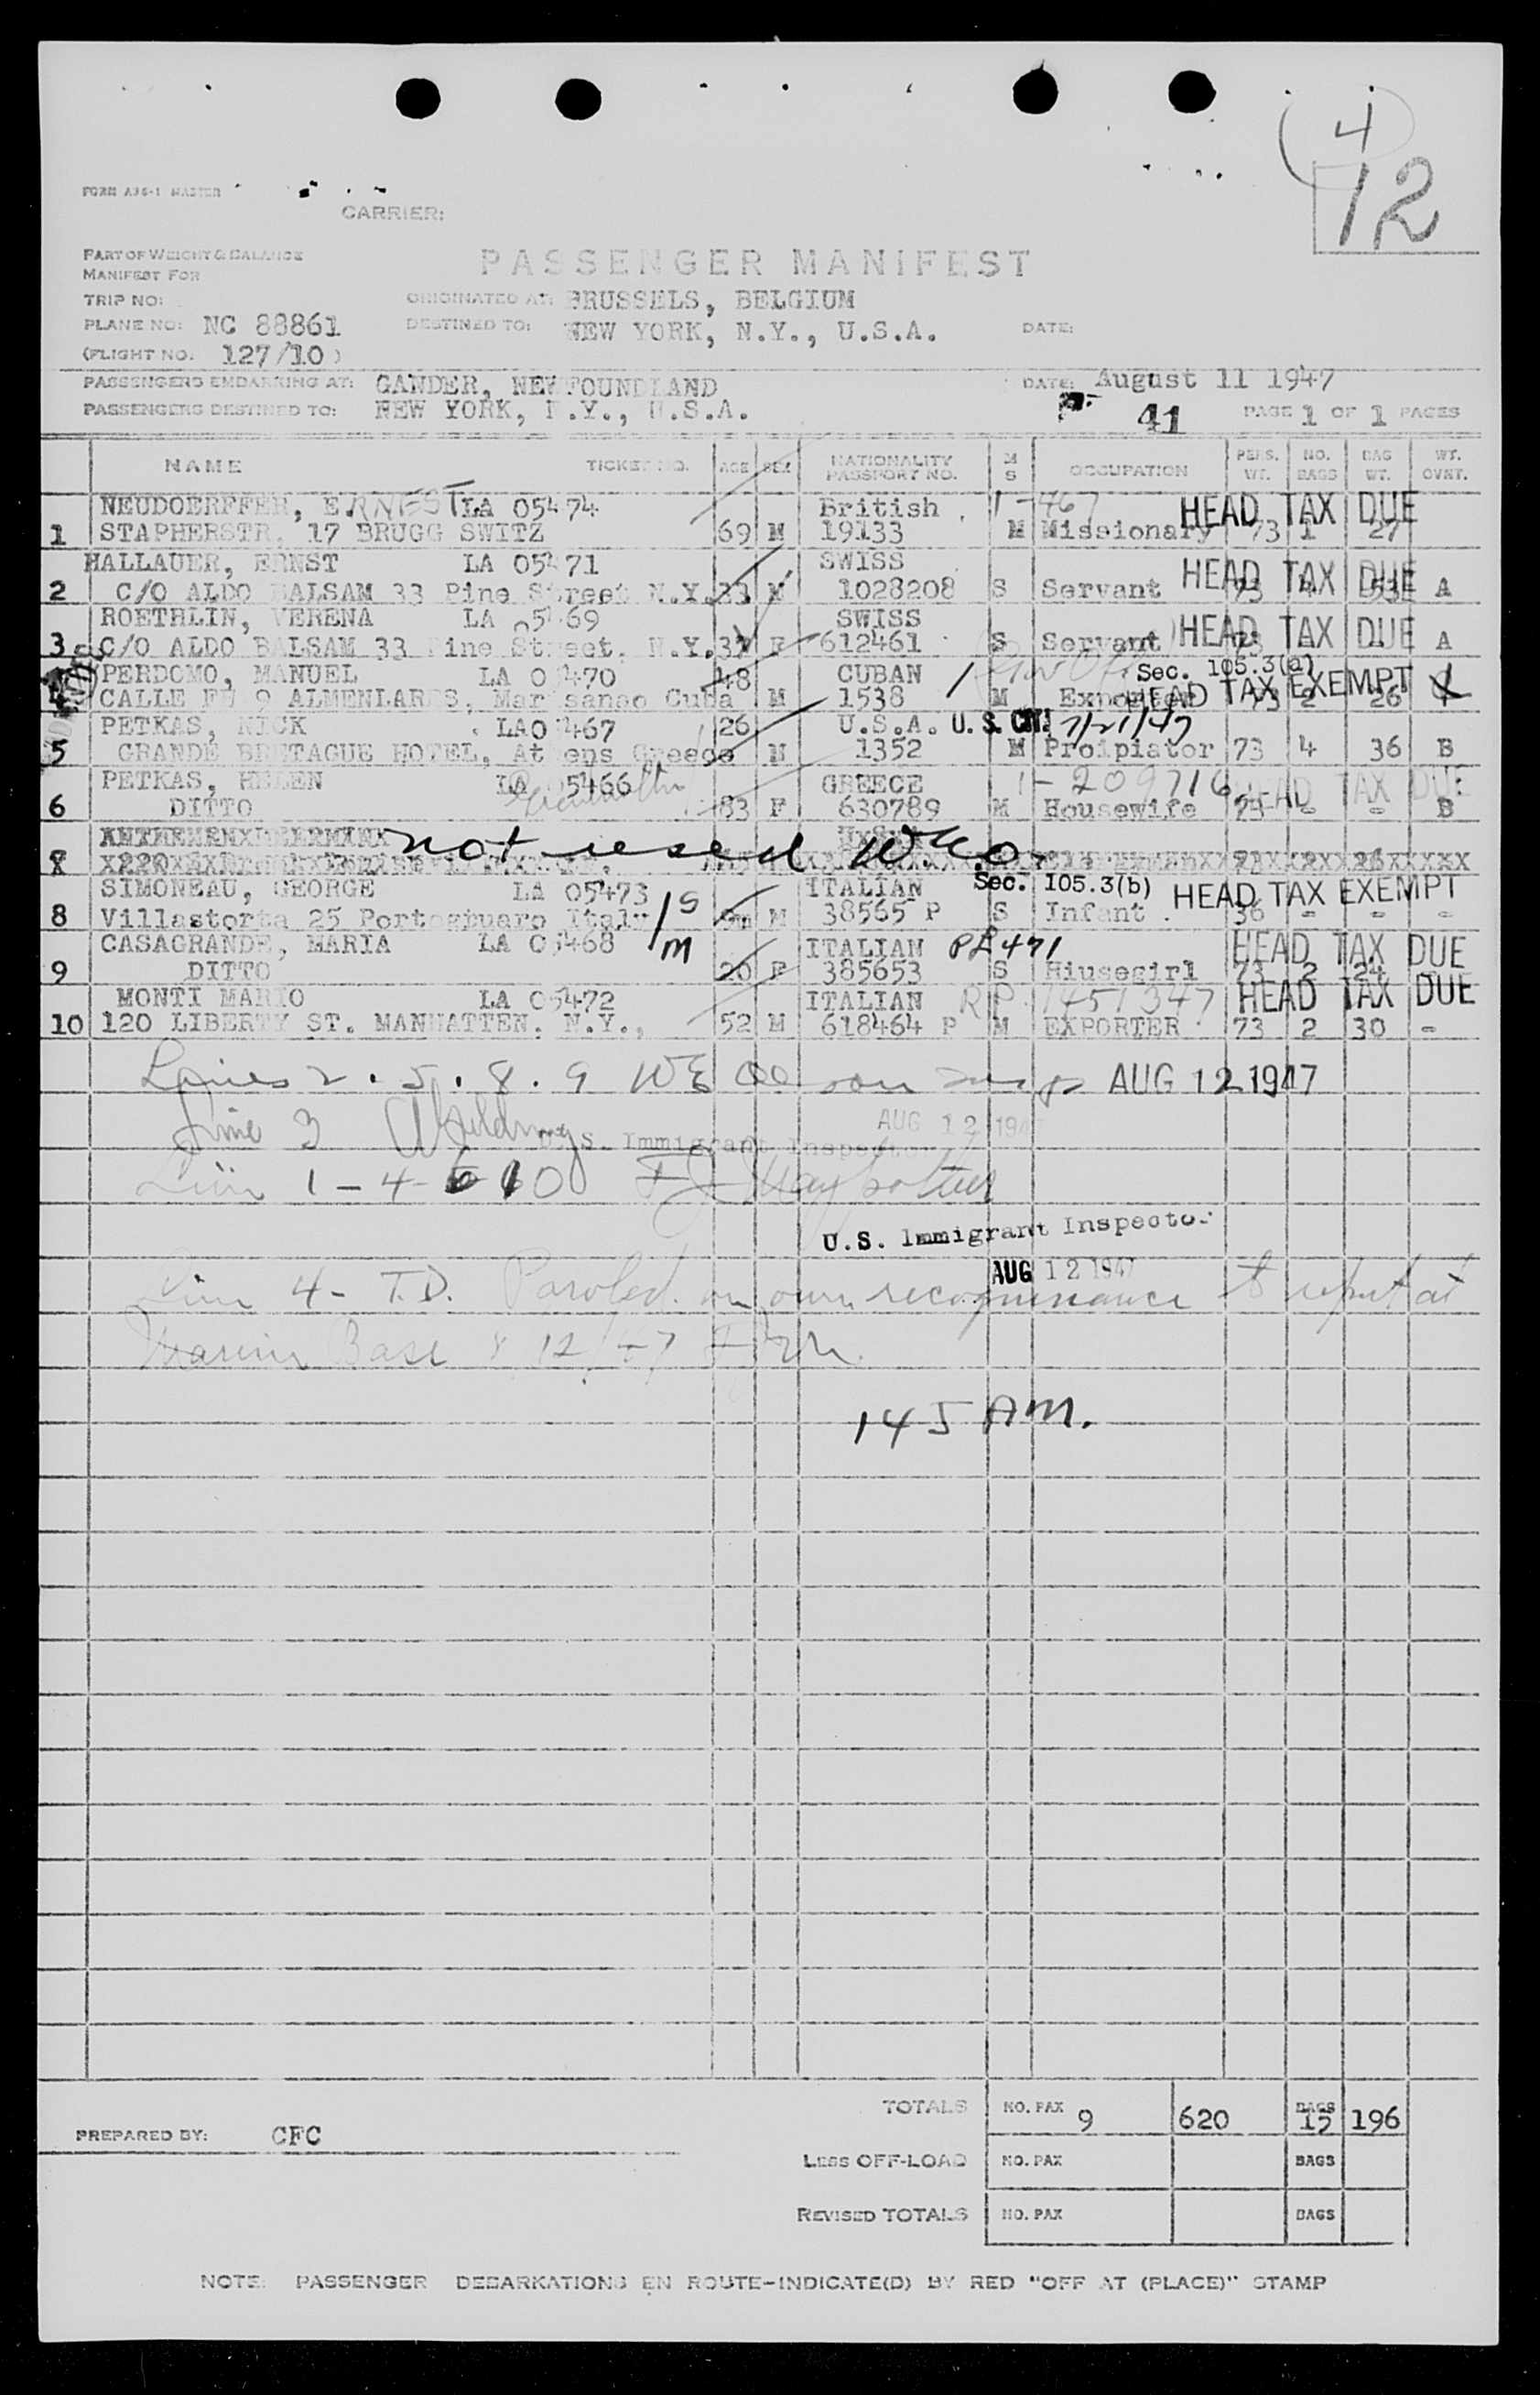 4
12
FORM A36-1 MASTER
CARRIER:
PART OF WEIGHT & BALANCE
MANIFEST FOR
PASSENGER MANIFEST
TRIP NO:
ORIGINATED AT: BRUSSELS, BELGIUM
PLANE NO: NC 88861
DESTINED TO: NEW YORK, N.Y., U.S.A.
DATE:
(FLIGHT NO. 127/10)
PASSENGERS EMBARKING AT: GANDER, NEWFOUNDLAND
DATE: August 11 1947
PASSENGERS DESTINED TO: NEW YORK, N.Y., U.S.A.
41 PAGE 1 OF 1 PAGES
NAME TICKET NO. AGE SEX NATIONALITY PASSPORT NO. M S OCCUPATION PERS. WT. NO. BAGS BAG WT. WT. OVRT.
NEUDOERFFER, ERNEST LA 05474 British 1-467 HEAD TAX DUE
1 STAPHERSTR. 17 BRUGG SWITZ 69 M 19133 M Missionary 73 1 27
HALLAUER, ERNST LA 05471 SWISS HEAD TAX DUE
2 C/O ALDO BALSAM 33 Pine Street N.Y. 33 M 1028208 S Servant 73 4 53 A
ROETHLIN, VERENA LA 05469 SWISS HEAD TAX DUE
3 C/O ALDO BALSAM 33 Pine Street. N.Y. 37 F 612461 S Servant 73 - - A
PERDOMO, MANUEL LA 05470 48 CUBAN Sec. 105.3(a)
4 M 1538 M Exporter 73 2 26 HEAD TAX EXEMPT
PETKAS, NICK LA05467 26 U.S.A. U.S. CIT. 7/21/47
5 GRANDE BRETAGUE HOTEL, Athens Greece M 1352 M Proipiator 73 4 36 B
PETKAS, HELEN LA 05466 GREECE 1-209716 HEAD TAX DUE
6 DITTO 83 F 630789 M Housewife 73 - - B
not used
SIMONEAU, GEORGE LA 05473 ITALIAN Sec. 105.3(b) HEAD TAX EXEMPT
8 Villastorta 25 Portogruaro Italy 9m M 38565 P S Infant 36 - - -
CASAGRANDE, MARIA LA 05468 ITALIAN HEAD TAX DUE
9 DITTO 20 F 385653 S Hiusegirl 73 2 24
MONTI MARIO LA 05472 ITALIAN RP 1451347 HEAD TAX DUE
10 120 LIBERTY ST. MANHATTEN. N.Y., 52 M 618464 P M EXPORTER 73 2 30 -
Lines 2. 5. 8. 9 AUG 12 1947
Line 3 AUG 12 194
U.S. Immigrant Inspector
Line 1-4-6 10
U.S. Immigrant Inspector
AUG 12 1947
Line 4- T.D. Paroled on own recognizance to report at
Marine Base 8/12/47
145 AM.
TOTALS NO. PAX 9 620 BAGS 15 196
PREPARED BY: CFC
LESS OFF-LOAD NO. PAX BAGS
REVISED TOTALS NO. PAX BAGS
NOTE: PASSENGER DEBARKATIONS EN ROUTE-INDICATE(D) BY RED "OFF AT (PLACE)" STAMP